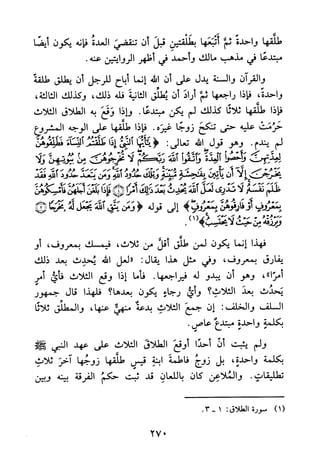 طلّقها واحدة ثمَّ أتبعَها بطلْقتينِ قبل أن تنقضيَ العدةُ فإنه يكون أيضًا
مبتدعًا في مذهب مالك وأحمد في أظهر الروايتين عنه.
والقرآن والسنة يدل على أن الله إنما أباح للرجل أن يطلق طلقةً
واحدةً، فإذا راجعها ثمَّ أرادَ أن يُطلِّق الثانيةَ فله ذلك، وكذلك الثالثة،
فإذا طلَّقها ثلاثًا كذلك لم يكن مبتدعًا. وإذا وَقَع به الطلاق الثلاث
حَرُمَتْ عليه حتى تنكحَ زوجًا غيرَه. فإذا طلَّقها على الوجه المشروع
لم يندم. وهو قول الله تعالى: ﴿يَٰٓأَيُّهَا ٱلنَّبِيُّ إِذَا طَلَّقْتُمُ ٱلنِّسَآءَ فَطَلِّقُوهُنَّ
لِعِدَّتِهِنَّ وَأَحْصُوا۟ ٱلْعِدَّةَ وَٱتَّقُوا۟ ٱللَّهَ رَبَّكُمْ لَا تُخْرِجُوهُنَّ مِنۢ بُيُوتِهِنَّ وَلَا
يَخْرُجْنَ إِلَّآ أَن يَأْتِينَ بِفَٰحِشَةٍ مُّبَيِّنَةٍ وَتِلْكَ حُدُودُ ٱللَّهِ وَمَن يَتَعَدَّ حُدُودَ ٱللَّهِ فَقَدْ
ظَلَمَ نَفْسَهُۥ لَا تَدْرِى لَعَلَّ ٱللَّهَ يُحْدِثُ بَعْدَ ذَٰلِكَ أَمْرًا ۝١ فَإِذَا بَلَغْنَ أَجَلَهُنَّ فَأَمْسِكُوهُنَّ
بِمَعْرُوفٍ أَوْ فَارِقُوهُنَّ بِمَعْرُوفٍ﴾ إلى قوله ﴿وَمَن يَتَّقِ ٱللَّهَ يَجْعَل لَّهُۥ مَخْرَجًا ۝٢
وَيَرْزُقْهُ مِنْ حَيْثُ لَا يَحْتَسِبُ﴾(١).
فهذا إنما يكون لمن طلَّق أقلَّ من ثلاث، فيمسك بمعروف، أو
يفارق بمعروف، وفي مثل هذا يقال: «لعل الله يُحدِث بعد ذلك
أمرًا»، وهو أن يبدو له فيراجعها. فأما إذا وقع الثلاث فأيُّ أمرٍ
يَحدُث بعدَ الثلاثِ؟ وأيُّ رجاءٍ يكون بعدها؟ فلهذا قال جمهور
السلف والخلف: إن جمعَ الثلاثِ بدعةٌ منهيٌّ عنها، والمطلق ثلاثًا
بكلمة واحدة مبتدعٌ عاصٍ.
ولم يثبت أنَّ أحدًا أوقعَ الطلاقَ الثلاث على عهد النبي ﷺ
بكلمة واحدة، بل زوجُ فاطمةَ ابنةِ قيس طلَّقها زوجُها آخرَ ثلاثِ
تطليقاتٍ. والمُلاعِن كان باللعان قد ثبت حكمُ الفرقة بينه وبين
(١) سورة الطلاق: ١ - ٣.
٢٧٠